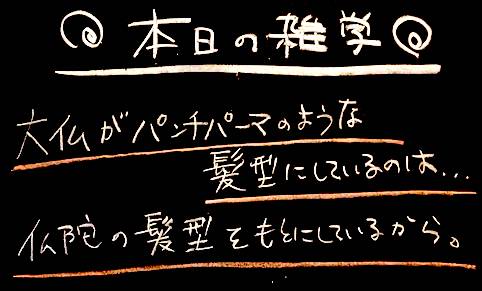 本日の雑学
大仏がパンチパーマのような
髪型にしているのは...
仏陀の髪型をもとにしているから。